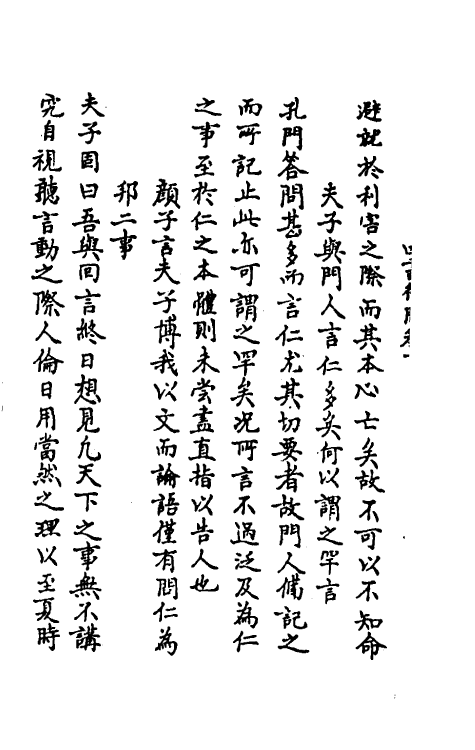 避就於利害之際而其本心亡矣故不可以不知命
夫子與門人言仁多矣何以謂之罕言
孔門答問甚多而言仁尤其切要者故門人備記之
而所記止此亦可謂之罕矣况所言不過泛及為仁
之事至於仁之本體則未嘗盡直指以告人也
顔子言夫子博我以文而論語僅有問仁為
邦二事
夫子固曰吾與回言終日想見凢天下之事無不講
究自視聽言動之際人倫日用當然之理以至夏時